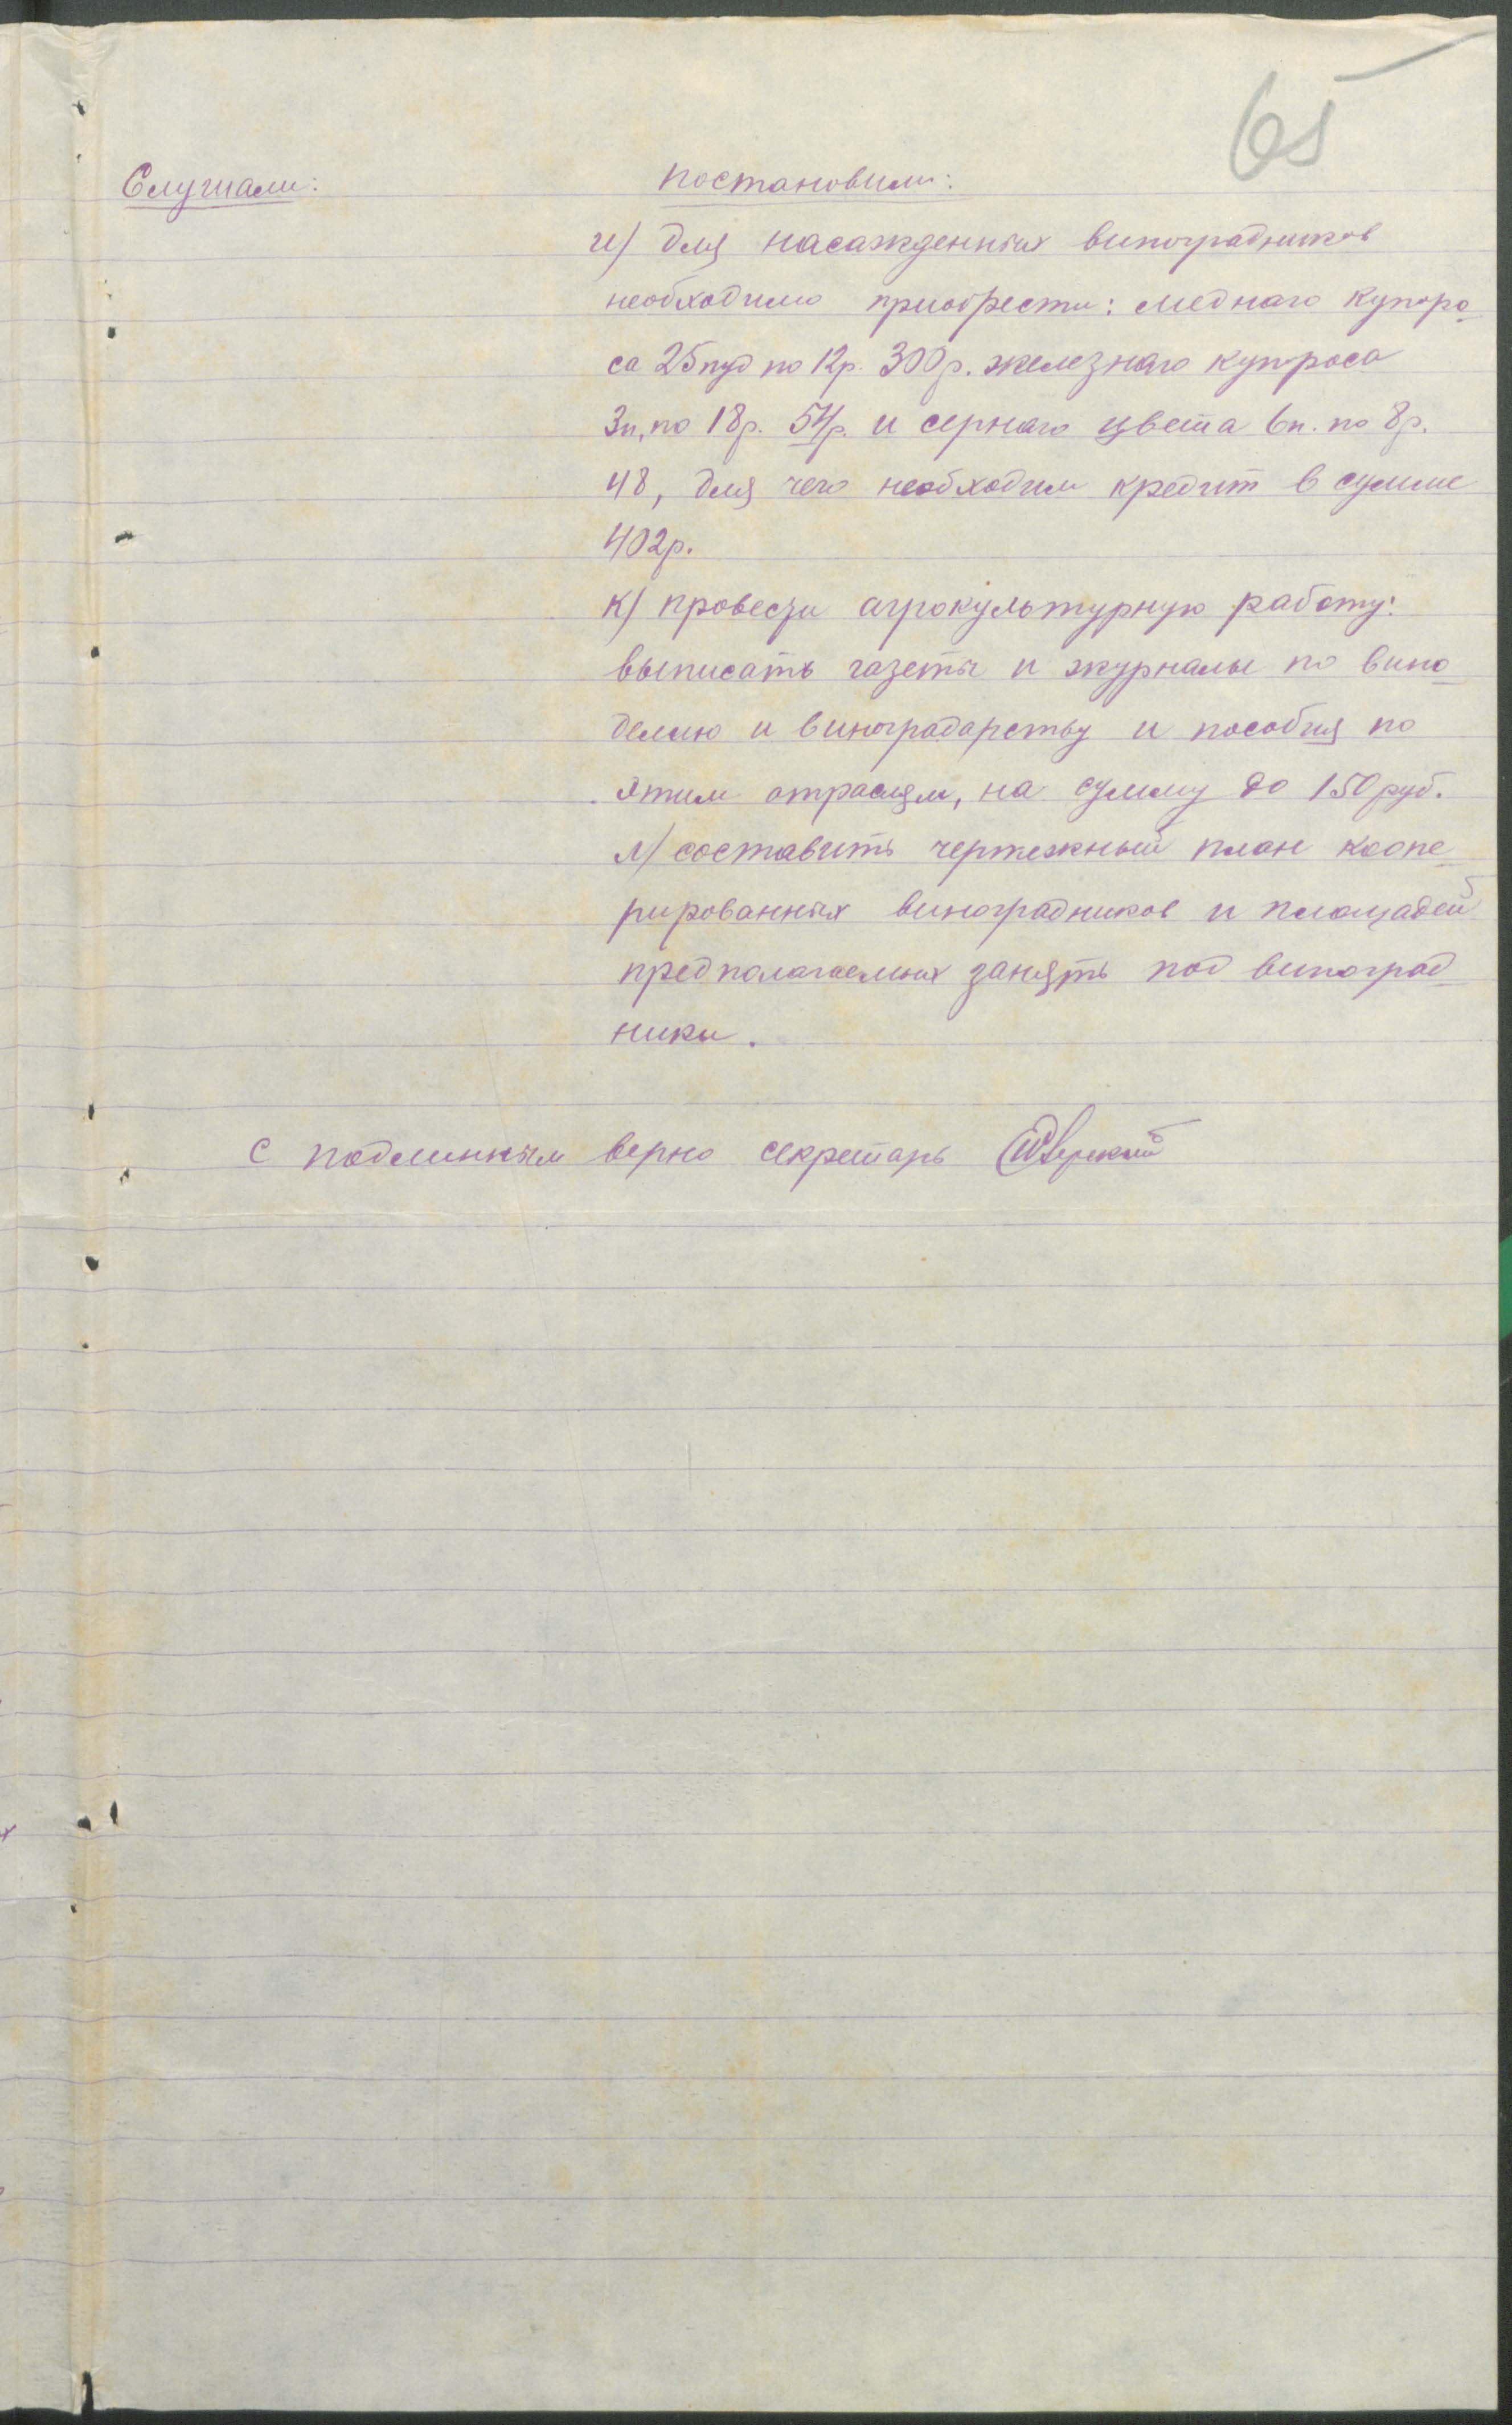 65
Слушали: постановили:
и) для насажденных виноградников
необходимо приобрести: меднаго купоро-
са 25 пуд по 12р. 300р. железнаго купороса
3п, по 18р. 54р. и сернаго цвета 6п. по 8р.
48, для чего необходим кредит в сумме
402р.
к) провести агрокультурную работу:
выписать газеты и журналы по вино-
делию и виноградарству и пособия по
этим отраслям, на сумму до 150 руб.
л) составить чертежный план коопе-
рированных виноградников и площадей
предполагаемых занять под виноград-
ники.
с подлинным верно секретарь